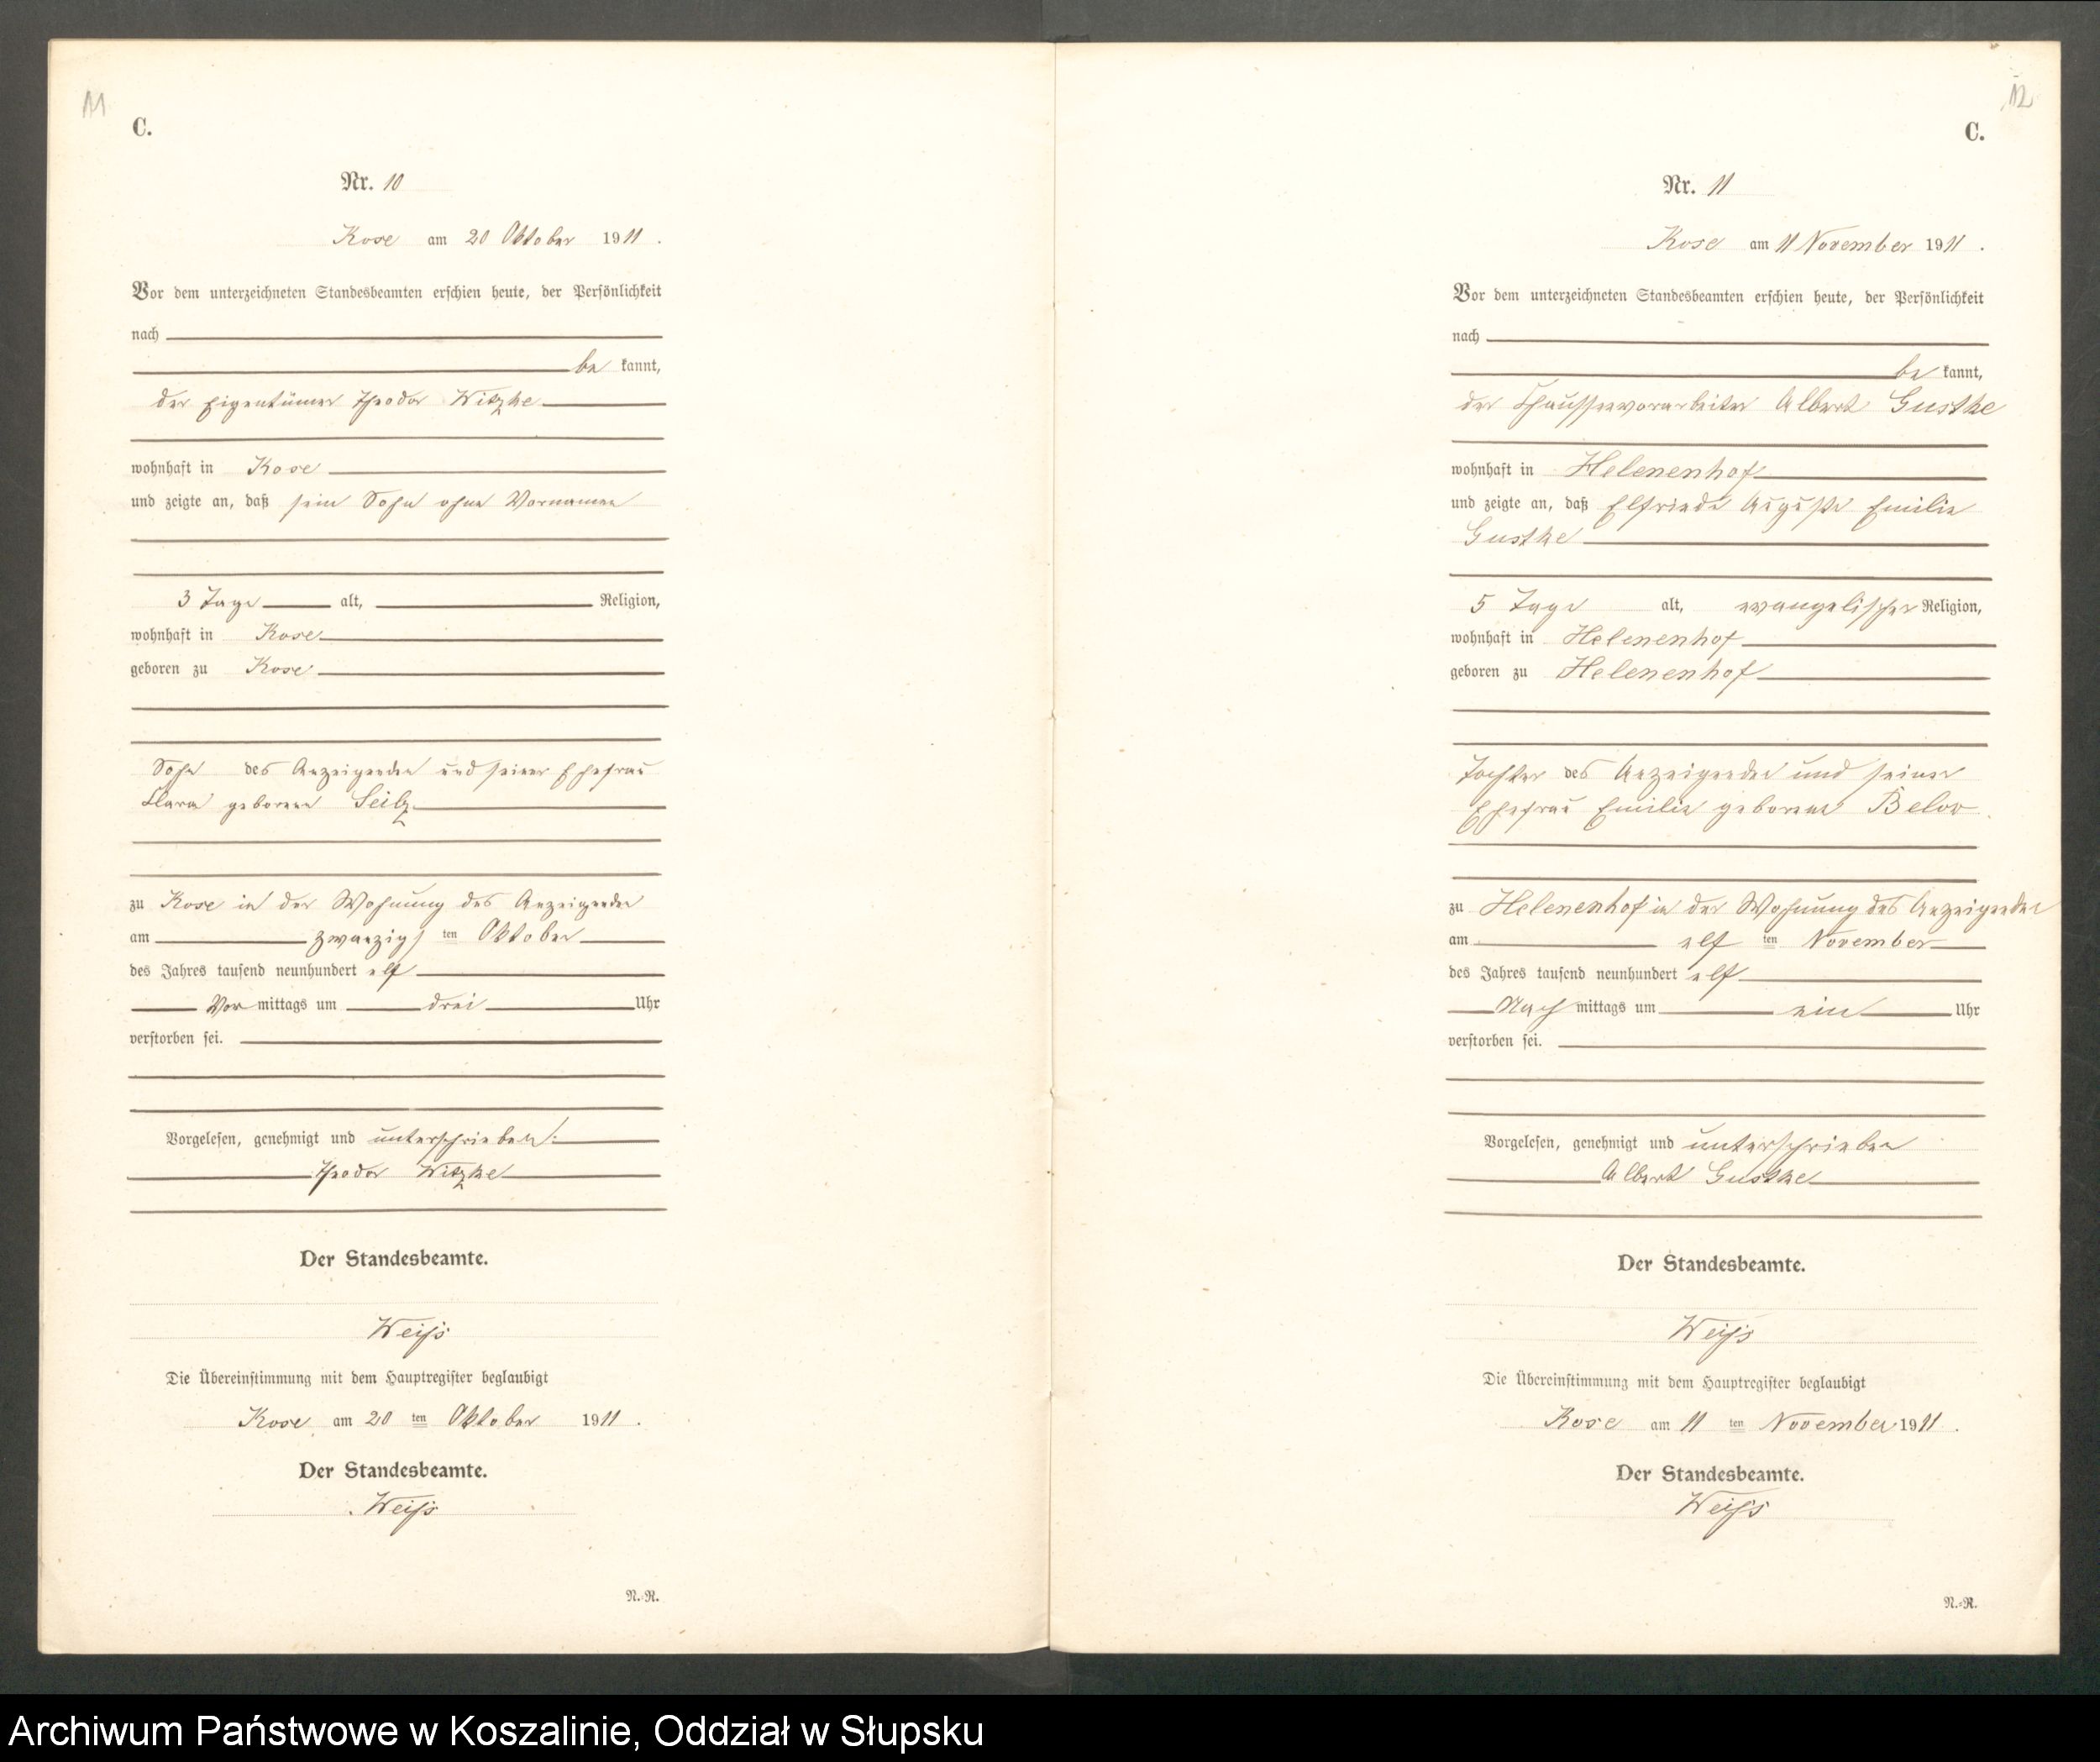 11
C.
Nr. 10
Kose am 20 Oktober 1911.
Vor dem unterzeichneten Standesbeamten erschien heute, der Persönlichkeit
nach
be kannt,
der Eigentümer Theodor Witzke
wohnhaft in Kose
und zeigte an, daß sein Sohn ohne Vornamen
3 Tage alt, Religion,
wohnhaft in Kose
geboren zu Kose
Sohn des Anzeigenden und seiner Ehefrau
Clara geborene Seilz
zu Kose in der Wohnung des Anzeigenden
am zwanzigsten Oktober
des Jahres tausend neunhundert elf
Vor mittags um drei Uhr
verstorben sei.
Vorgelesen, genehmigt und unterschrieben.
Theodor Witzke
Der Standesbeamte.
Weiß
Die Übereinstimmung mit dem Hauptregister beglaubigt
Kose am 20 ten Oktober 1911.
Der Standesbeamte.
Weiß
N.-R.
12
C.
Nr. 11
Kose am 11 November 1911.
Vor dem unterzeichneten Standesbeamten erschien heute, der Persönlichkeit
nach
be kannt,
der Chausseevorarbeiter Albert Gustke
wohnhaft in Helenenhof
und zeigte an, daß Elfriede Auguste Emilie
Gustke
5 Tage alt, evangelischer Religion,
wohnhaft in Helenenhof
geboren zu Helenenhof
Tochter des Anzeigenden und seiner
Ehefrau Emilie geborene Belov
zu Helenenhof in der Wohnung des Anzeigenden
am elf ten November
des Jahres tausend neunhundert elf
Nach mittags um ein Uhr
verstorben sei.
Vorgelesen, genehmigt und unterschrieben
Albert Gustke
Der Standesbeamte.
Weiß
Die Übereinstimmung mit dem Hauptregister beglaubigt
Kose am 11 ten November 1911.
Der Standesbeamte.
Weiß
N.-R.
Archiwum Państwowe w Koszalinie, Oddział w Słupsku